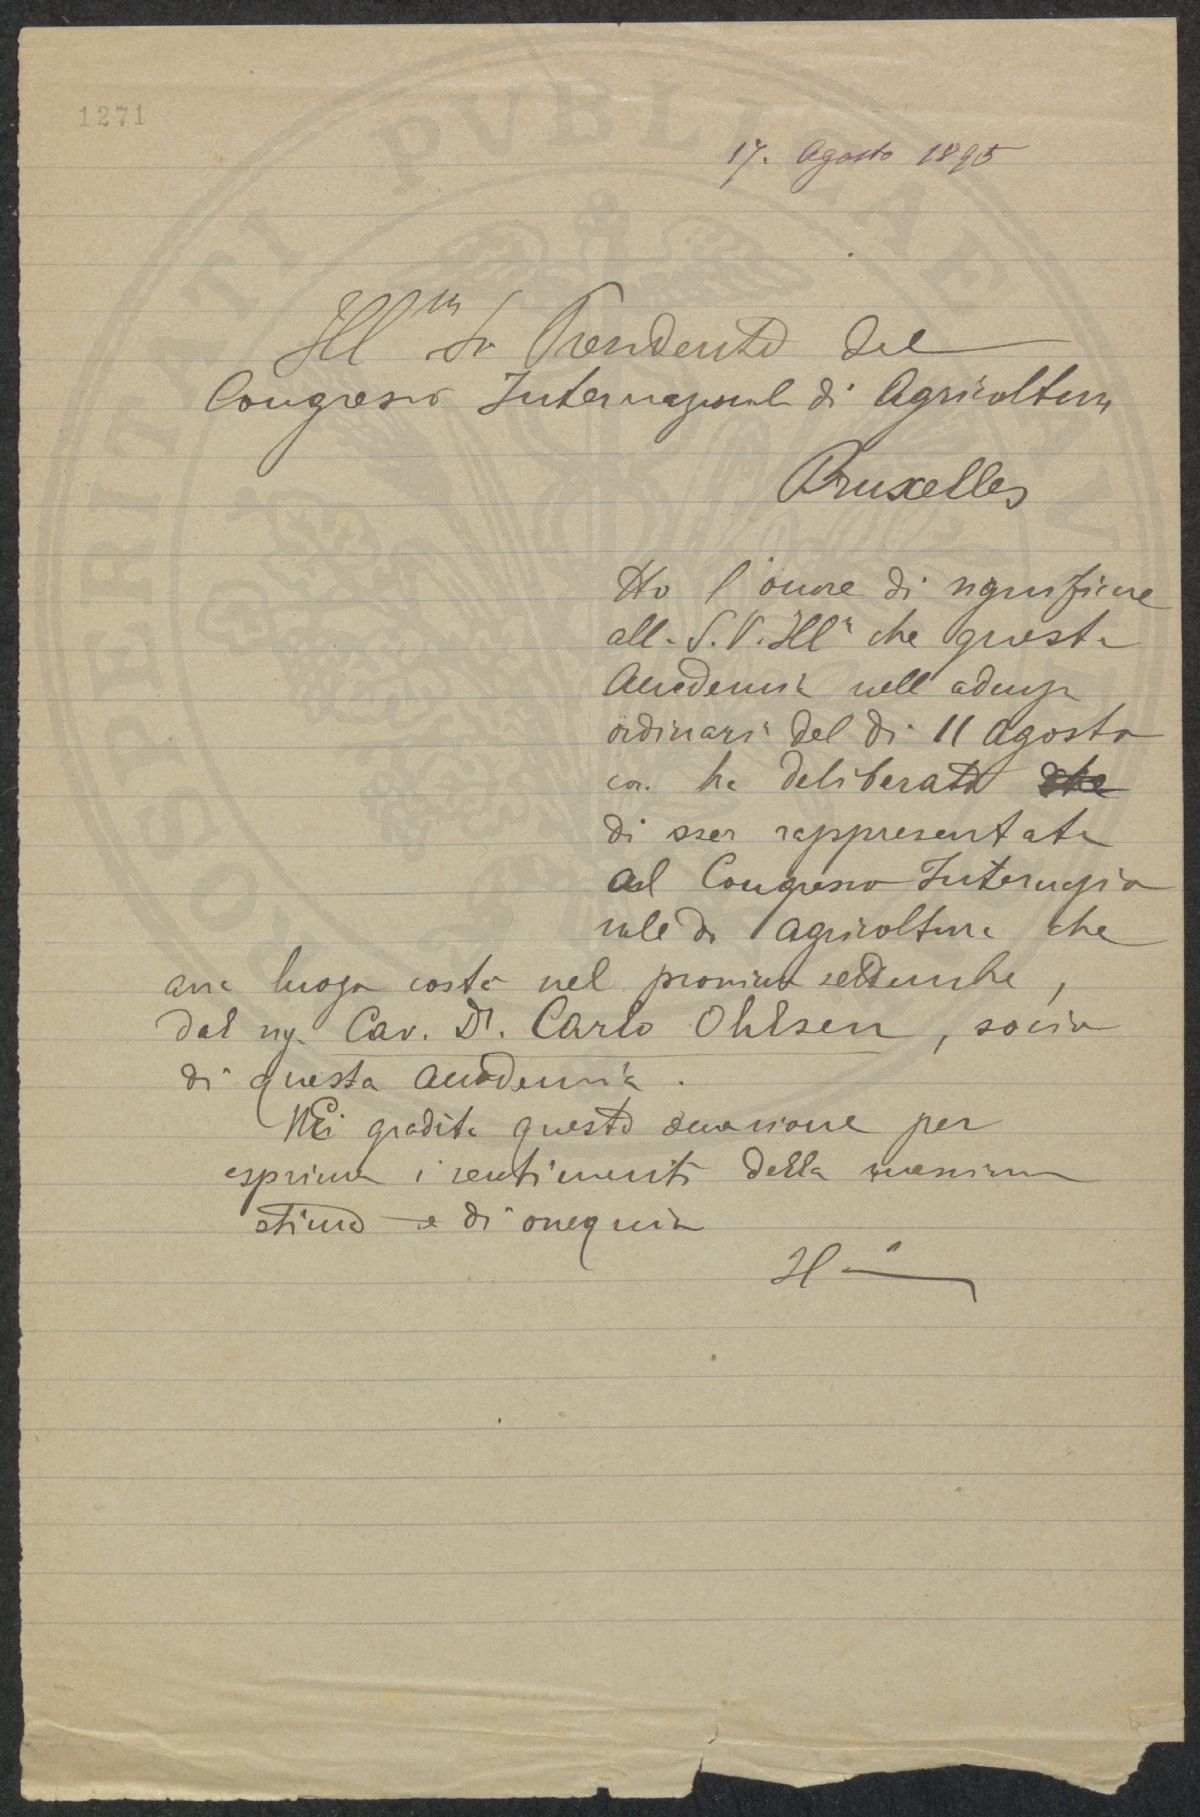 1271
17. Agosto 1895
Ill.m Sr Presidente del
Congresso Internazionale di Agricoltura
Bruxelles
Ho l'onore di significare
alla S.V. Ill.a che questa
Accademia nell'adunza
ordinaria del dì 11 Agosto
cor. ha deliberato che
di esser rappresentata
al Congresso Internazio
nale di Agricoltura che
avrà luogo costà nel prossimo settembre,
dal sig. Cav. Dr. Carlo Ohlsen, socio
di questa Accademia.
Mi è gradita questa occasione per
esprimer i sentimenti della massima
stima e di ossequio
Il